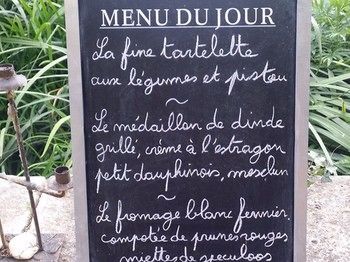 MENU DU JOUR
La fine tartelette
aux légumes et pistou
~
Le médaillon de dinde
grillé, crème à l'estragon
petit dauphinois, mesclun
~
Le fromage blanc fermier,
compotée de prunes rouges
miettes de speculoos